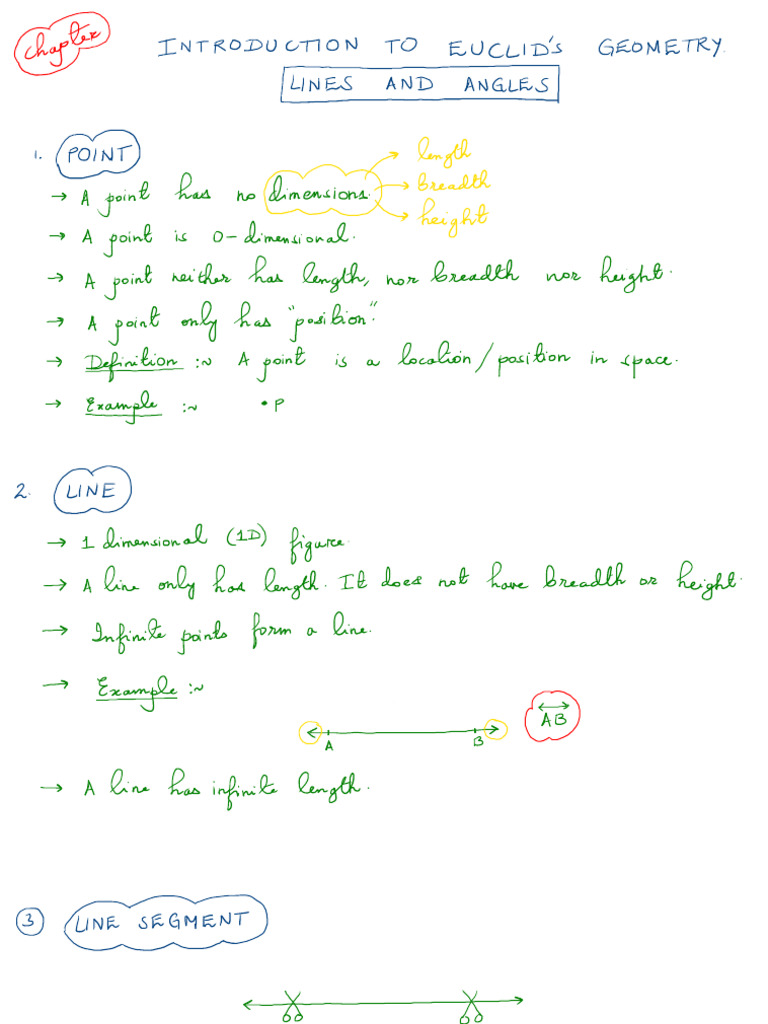 chapter
INTRODUCTION TO EUCLID'S GEOMETRY.
LINES AND ANGLES
1. POINT
→ A point has no dimensions. → length
→ breadth
→ height
→ A point is 0-dimensional.
→ A point neither has length, nor breadth nor height.
→ A point only has "position".
→ Definition :~ A point is a location/position in space.
→ Example :~ • P
2. LINE
→ 1 dimensional (1D) figure.
→ A line only has length. It does not have breadth or height.
→ Infinite points form a line.
→ Example :~
A B
AB
→ A line has infinite length.
3 LINE SEGMENT